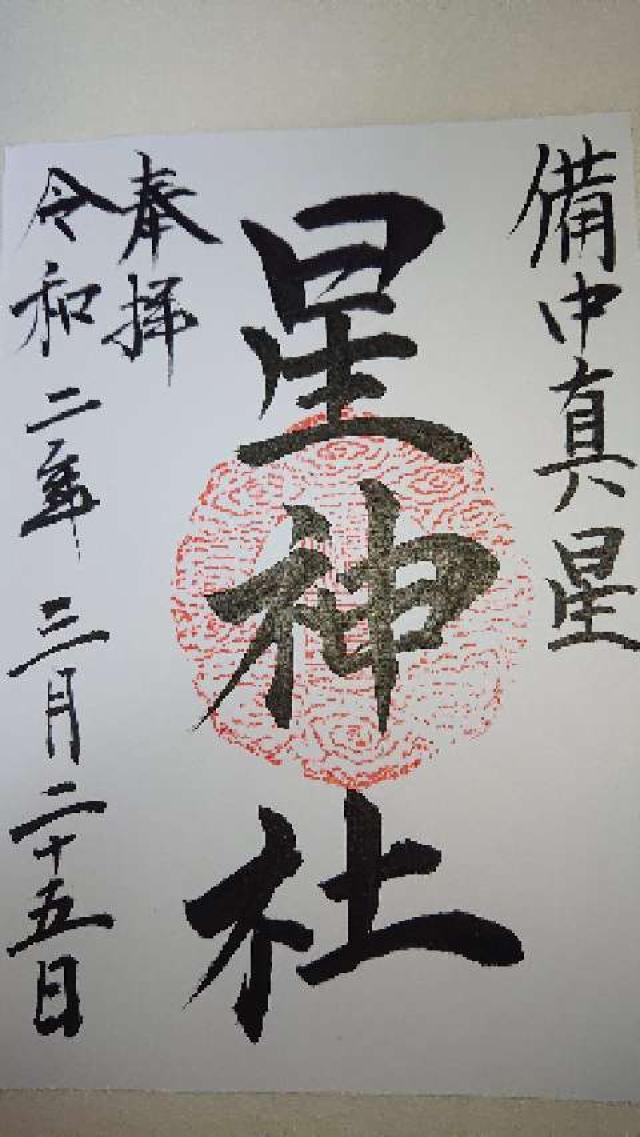 備中真星
星神社
奉拝
令和二年三月二十五日